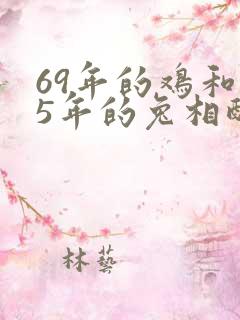 69年的鸡和
5年的兔相
林藝